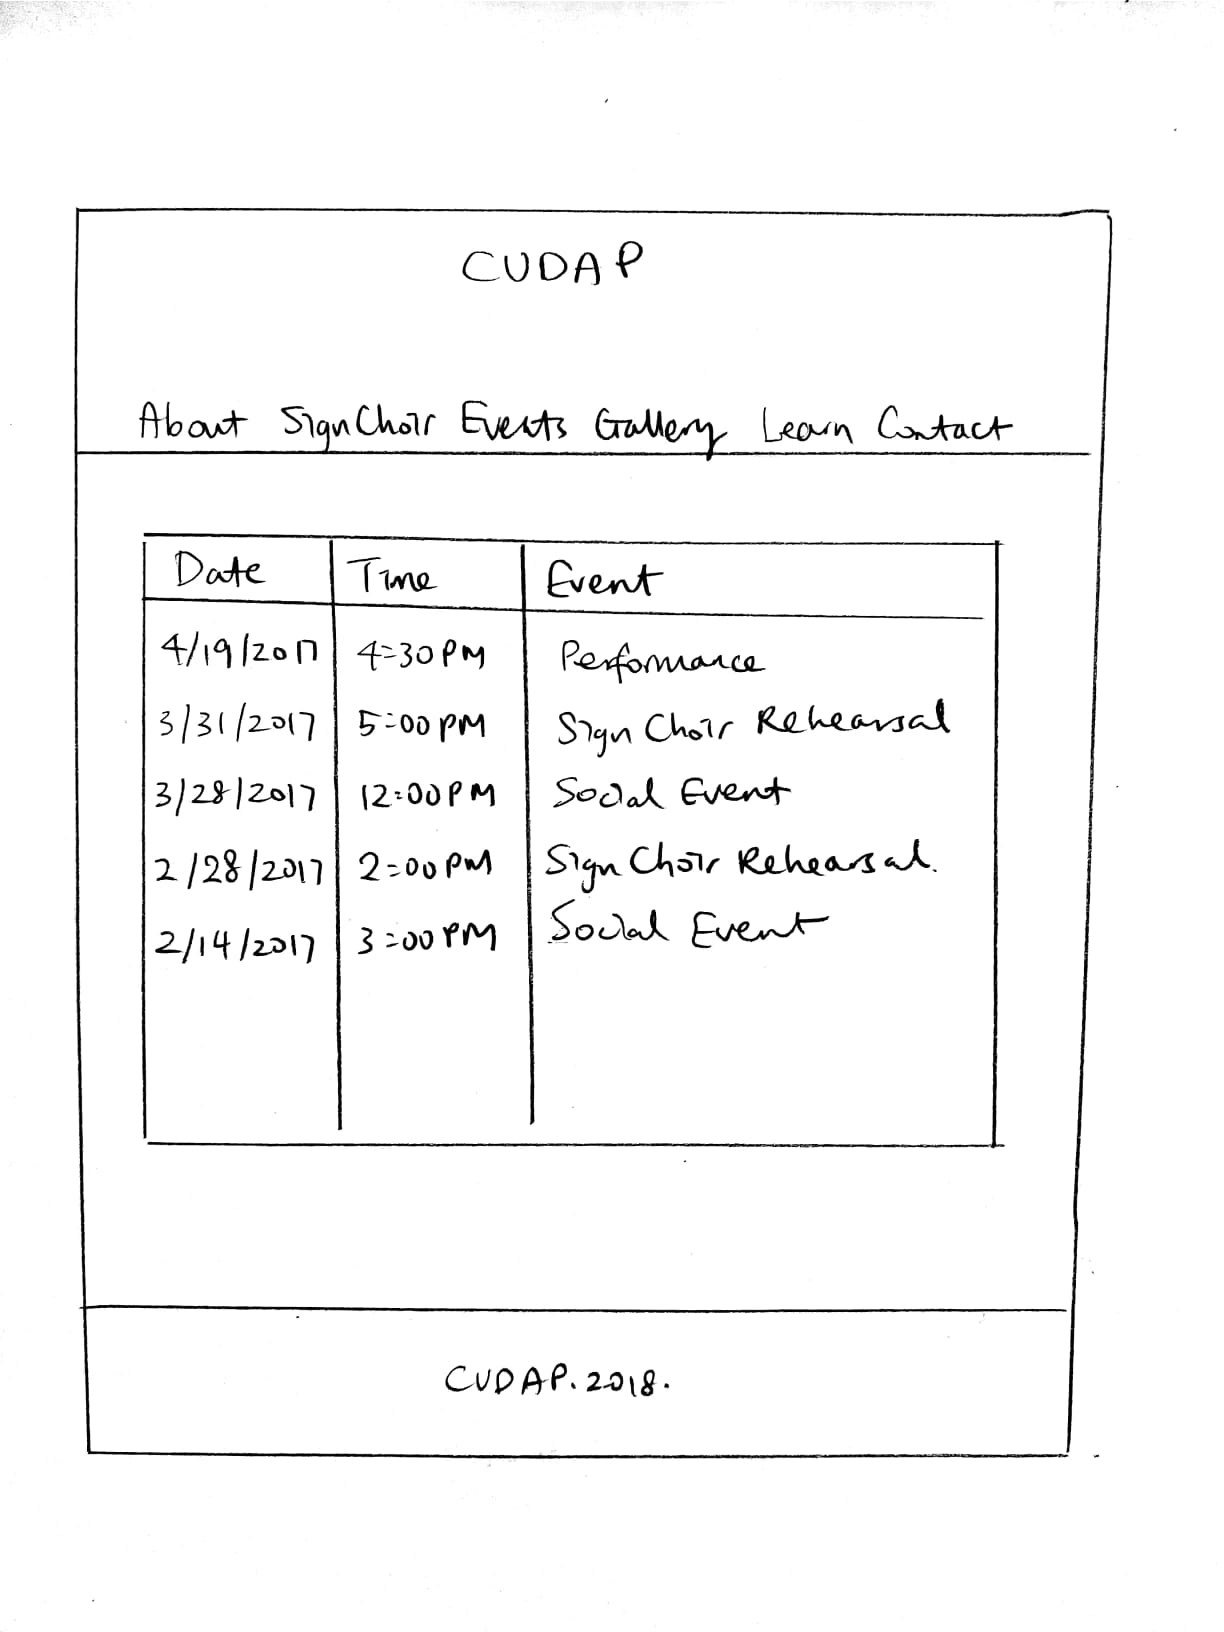 CUDAP
About SignChoir Events Gallery Learn Contact
Date Time Event
4/19/2017 4:30 PM Performance
3/31/2017 5:00 PM Sign Choir Rehearsal
3/28/2017 12:00 PM Social Event
2/28/2017 2:00 PM Sign Choir Rehearsal.
2/14/2017 3:00 PM Social Event
CUDAP. 2018.